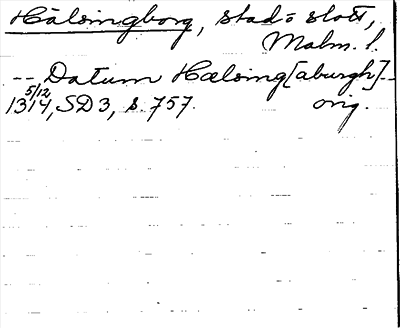 Hälsingborg, stad o slott,
Malm. l.
-- Datum Hælsing[aburgh] --
1314 5/12, SD 3, s. 757. orig.